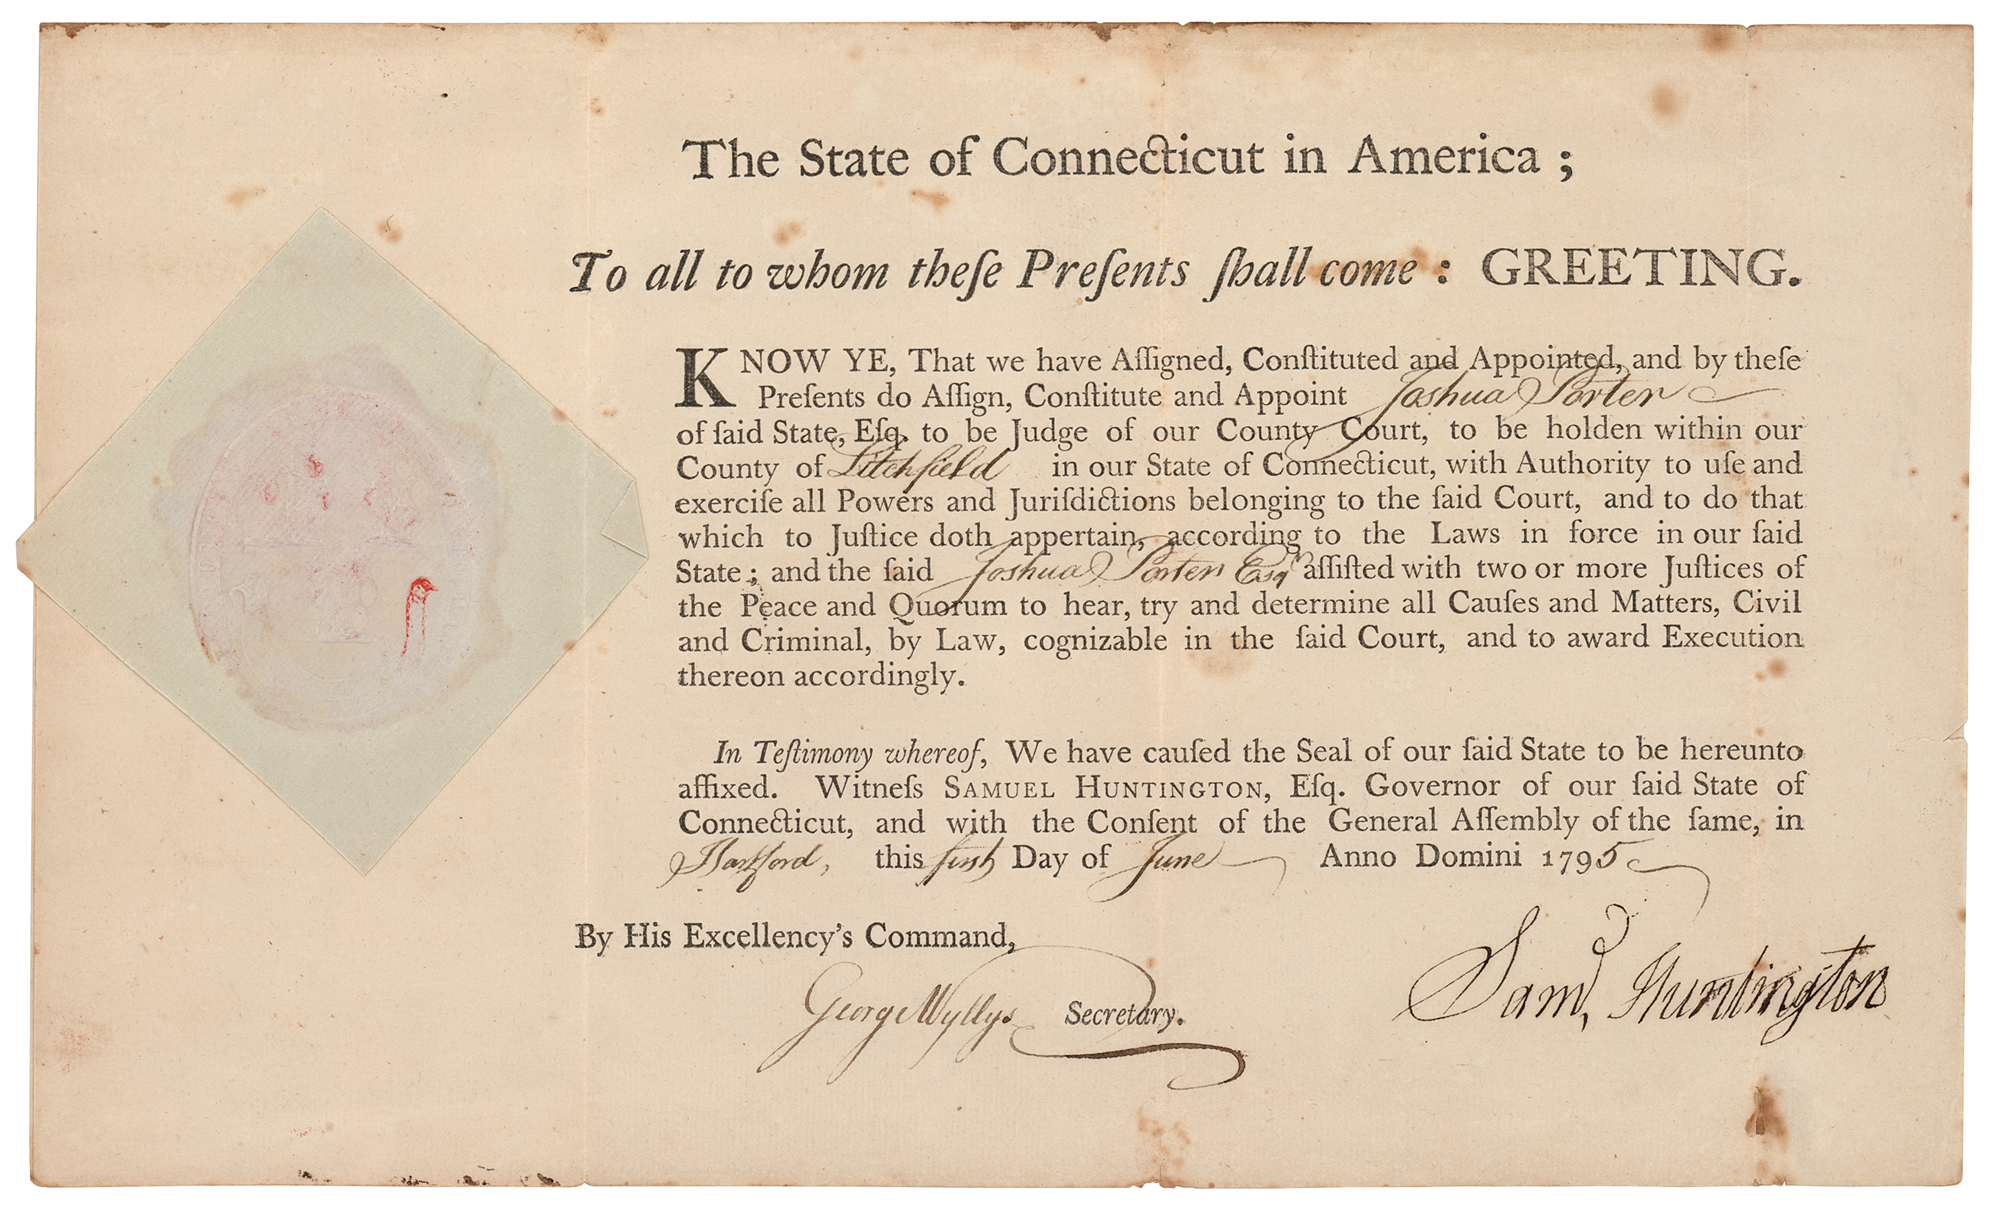 The State of Connecticut in America ;
To all to whom theſe Preſents ſhall come : GREETING.
KNOW YE, That we have Aſſigned, Conſtituted and Appointed, and by theſe
Preſents do Aſſign, Conſtitute and Appoint Joshua Porter
of ſaid State, Eſq. to be Judge of our County Court, to be holden within our
County of Litchfield in our State of Connecticut, with Authority to uſe and
exerciſe all Powers and Juriſdictions belonging to the ſaid Court, and to do that
which to Juſtice doth appertain, according to the Laws in force in our ſaid
State ; and the ſaid Joshua Porter Esqr aſſiſted with two or more Juſtices of
the Peace and Quorum to hear, try and determine all Cauſes and Matters, Civil
and Criminal, by Law, cognizable in the ſaid Court, and to award Execution
thereon accordingly.
In Teſtimony whereof, We have cauſed the Seal of our ſaid State to be hereunto
affixed. Witneſs SAMUEL HUNTINGTON, Eſq. Governor of our ſaid State of
Connecticut, and with the Conſent of the General Aſſembly of the ſame, in
Hartford, this first Day of June Anno Domini 1795
By His Excellency's Command,
George Wyllys Secretary.
Samd, Huntington